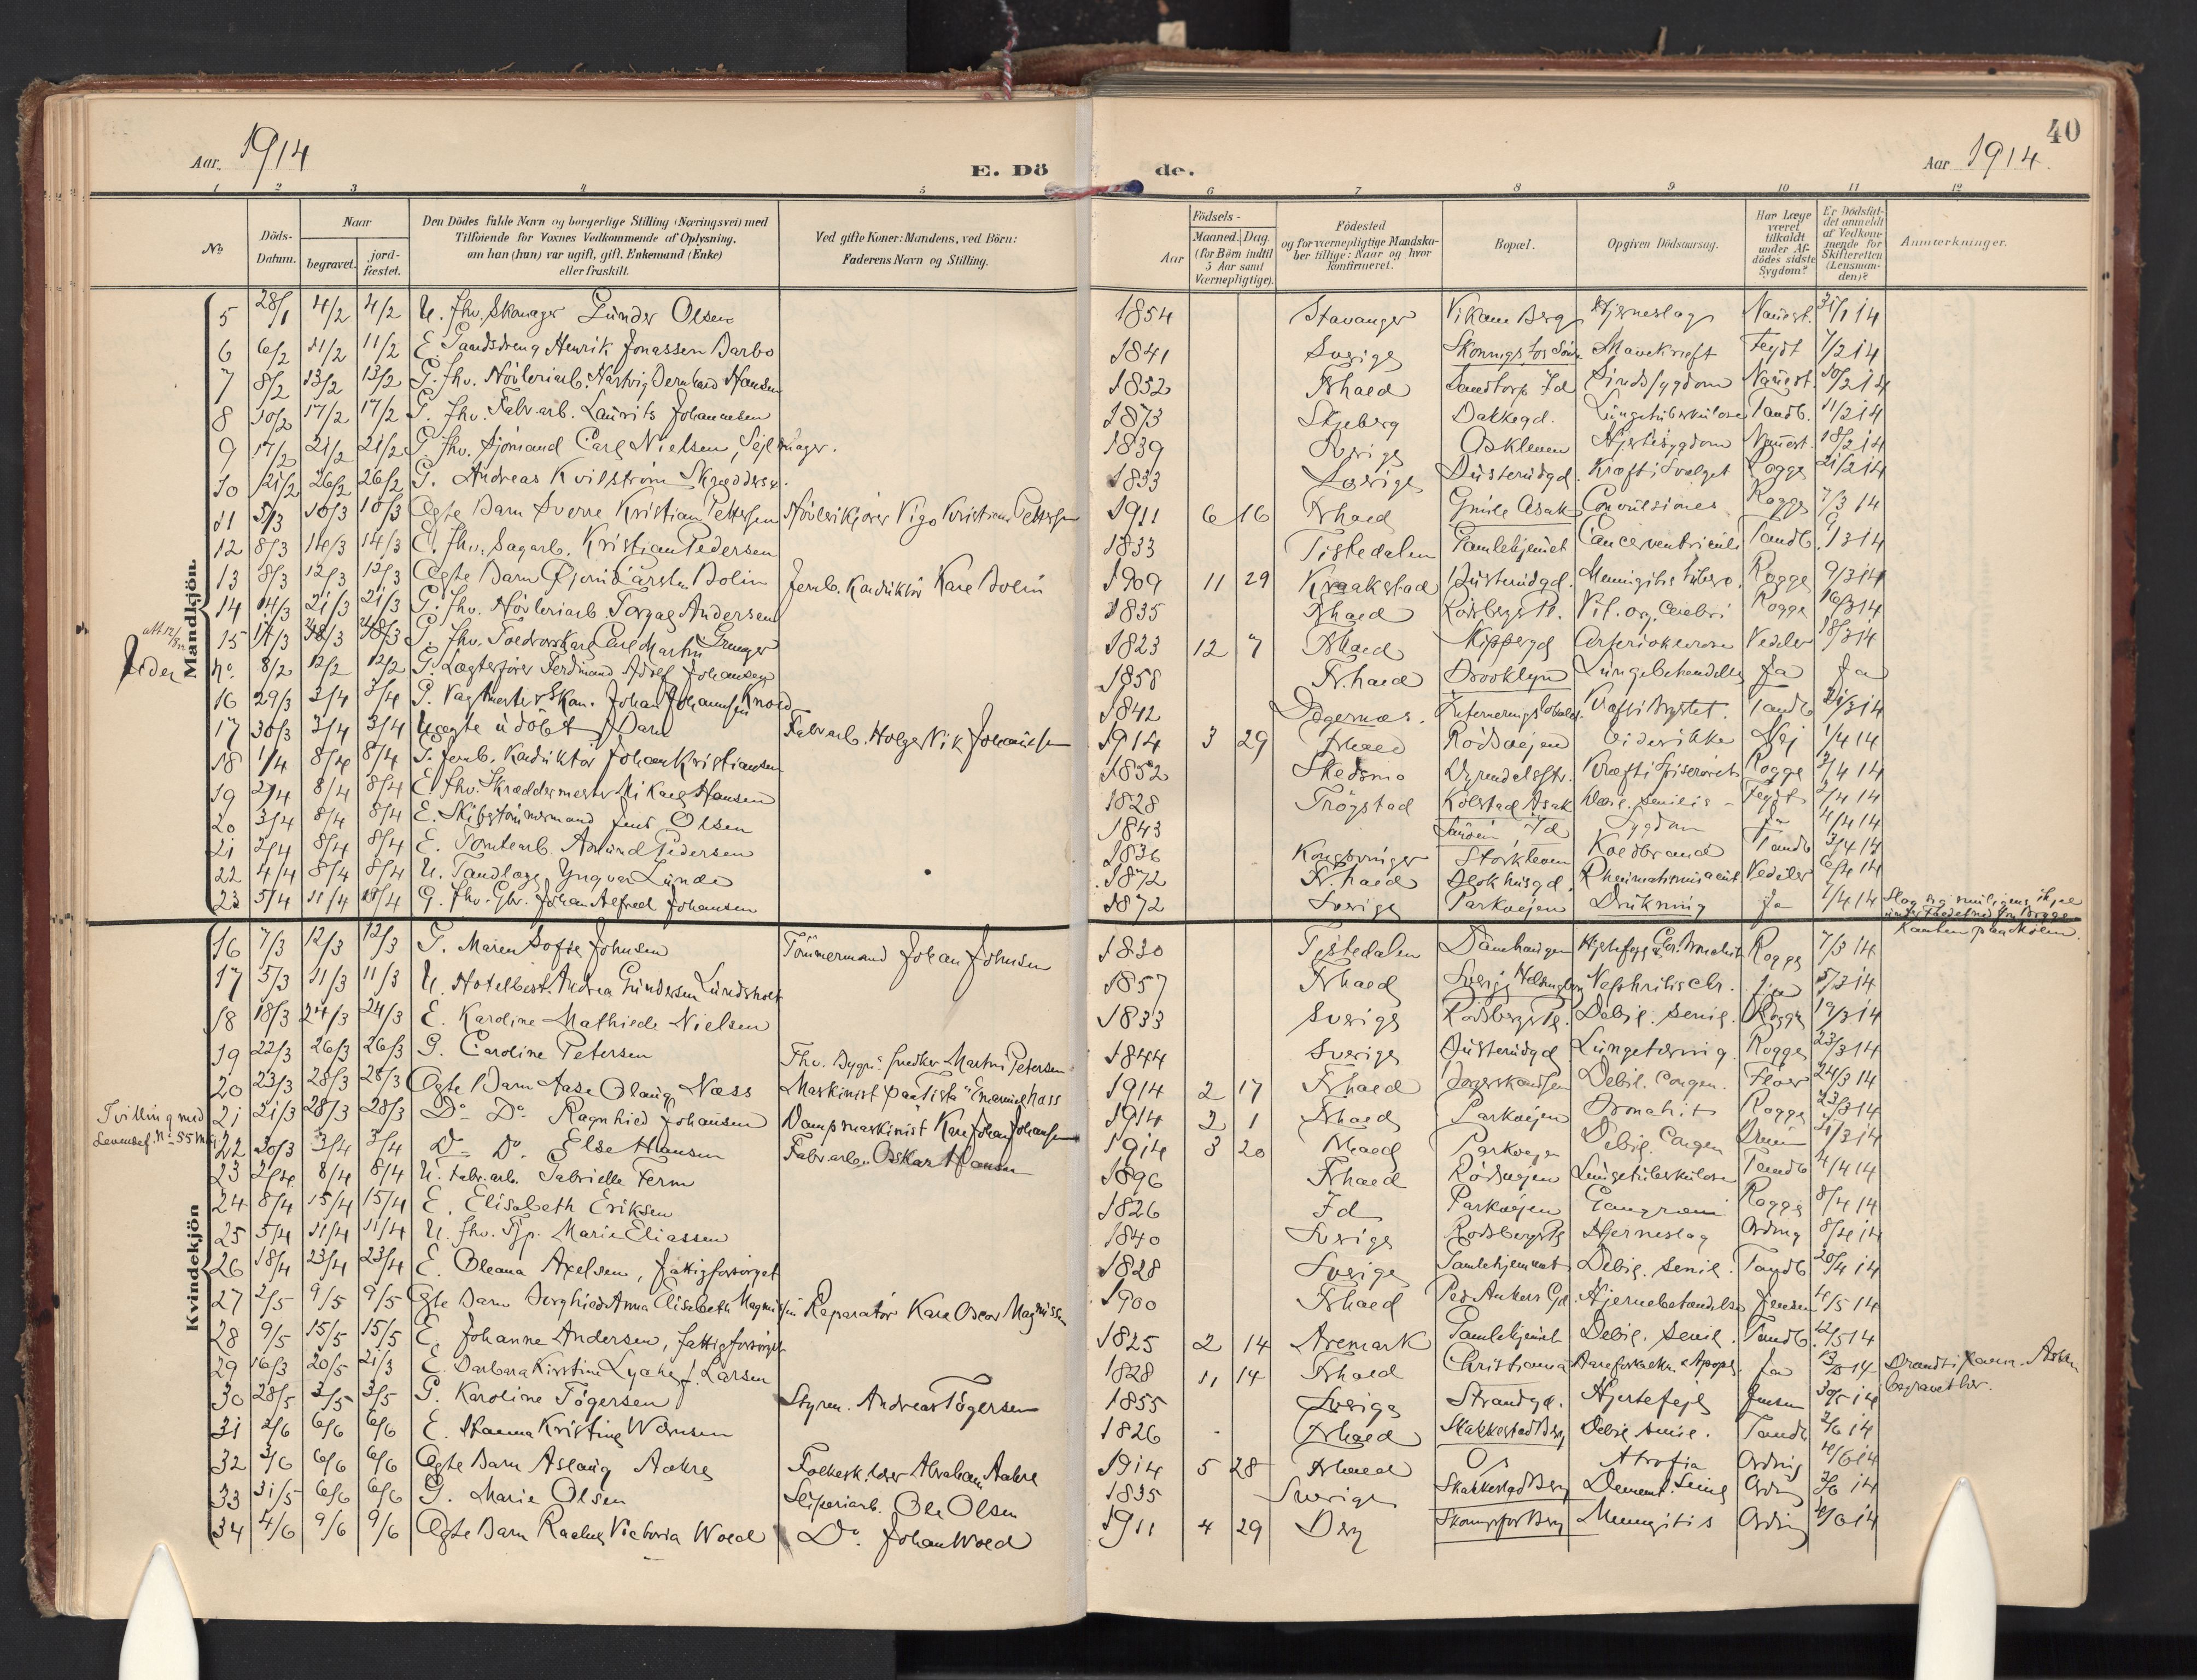 40
Aar. 1914
E. Döde.
Aar 1914.
1 2 3 4 5 6 7 8 9 10 11 12
No
Döds-Datum.
Naar begravet. jordfæstet.
Den Dödes fulde Navn og borgerlige Stilling (Næringsvei) med Tilföiende for Voxnes Vedkommende af Oplysning, om han (hun) var ugift, gift, Enkemand (Enke) eller fraskilt.
Ved gifte Koner: Mandens, ved Börn: Faderens Navn og Stilling.
Födsels-
Aar
Maaned. Dag.
(for Börn indtil 5 Aar samt Værnepligtige).
Födested og for værnepligtige Mandskaber tillige: Naar og hvor konfirmeret.
Bopæl.
Opgiven Dödsaarsag.
Har Læge været tilkaldt under Afdödes sidste Sygdom?
Er Dödsfaldet anmeldt af Vedkommende for Skifteretten (Lensmanden)?
Anmærkninger.
Mandkjön.
5 28/1 4/2 4/2 U. fhv. Skomager Gunder Olsen 1854 Stavanger Vikane Berg Hjerneslag 31/1 14
6 6/2 11/2 11/2 E. Henrik Jonassen Barbo 1841 Sverige Mavekræft Feydt 7/2 14
7 8/2 13/2 13/2 G. fhv. Høvleriarb. Hartvig Bernhard Hansen 1852 Frhald Sandtorp Id Sindssygdom 10/2 14
8 10/2 17/2 17/2 G. fhv. Fabr.arb. Laurits Johannesen 1873 Skjeberg Bakkegd. Lungetuberkulose Tandb. 11/2 14
9 17/2 21/2 21/2 G. fhv. Sjömand Carl Nielsen, Sejlmager. 1839 Sverige Askleven Hjertesygdom 18/2 14
10 21/2 26/2 26/2 G. Andreas Kvilström Skræddersv. 1833 Sverige Busterudgd. Kræft i Svælget Rogge 21/2 14
11 5/3 10/3 10/3 Ægte Barn Sverre Kristian Pettersen Høvlerikjører Vigo Kristian Pettersen 1911 6 16 Frhald Asak Convulsiones Rogge 7/3 14
12 8/3 14/3 14/3 E. fhv. Sagarb. Kristian Pedersen 1833 Tistedalen Gamlehjemet Cancer ventriculi Tandb. 9/3 14
13 8/3 12/3 12/3 Ægte Barn Bjorn Carsten Bolin Jernb. Konduktör Karl Bolin 1909 11 29 Kraakstad Busterudgd. Meningitis tuberc. Rogge 9/3 14
14 14/3 21/3 21/3 G. fhv. Høvleriarb Torgas Andersen 1835 Frhald Rødsbergs Pl. Vit. org. cerebri Rogge 16/3 14
15 14/3 18/3 18/3 G. fhv. Carl Martin Granger 1823 12 7 Frhald Skippergd Arteriosclerose Vedeler 18/3 14
No. 8/2 12/2 12/2 G. Lægterfører Ferdinand Adolf Johansen 1858 Fr.hald Brooklyn Lungebetændelse Ja Ja
16 29/3 3/4 3/4 G. Johan Johannesen Knold 1842 Kræft i Brystet. Tandb 31/3 14
17 30/3 3/4 3/4 Uægte udöbt Barn Fabr.arb. Holger Vik Johansen 1914 3 29 Frhald Rødsvejen Vides ikke Nej 1/4 14
18 1/4 8/4 8/4 G. Jernb. Konduktör Johan Kristiansen 1852 Skedsmo Kræft i Spiserøret Rogge 2/4 14
19 2/4 8/4 8/4 E. fhv. Skræddermester Mikael Hansen 1828 Trögstad Kolstad Asak Debil. senilis Feydt 2/4 14
20 3/4 8/4 8/4 E. Skibstömmermand Jens Olsen 1843 Id Sygdom Ja 4/4 14
21 2/4 8/4 8/4 E. Tomtearb. Amund Pedersen 1836 Kongsvinger Storkleven Koldbrand Tandb 3/4 14
22 4/4 8/4 8/4 U. Tandlæge Yngvar Lunde 1872 Fr.hald Rheumatismus acut. Vedeler 6/4 14
23 5/4 11/4 11/4 G. fhv. Gbr. Johan Alfred Johansen 1872 Sverige Parkvejen Drukning Ja 7/4 14
Kvindekjön
16 7/3 12/3 12/3 G. Maren Sofie Johnsen Tömmermand Johan Johnsen 1830 Tistedalen Damhaugen Rogge 7/3 14
17 5/3 11/3 11/3 U. Hotelbest. Andrea Gundersen Lundsholt 1857 Frhald Sverige Helsingborg Nephritis chr. Ja 5/3 14
18 18/3 24/3 24/3 E. Karoline Mathilde Nielsen 1833 Sverige Rødsbergs Pl. Debil. senil. Rogge 19/3 14
19 22/3 26/3 26/3 G. Caroline Petersen Fhv. Bygn. Snedker Martin Petersen 1844 Sverige Busterudgd Lungetæring Rogge 23/3 14
20 23/3 28/3 28/3 Ægte Barn Aase Olaug Næss Maskinist paa "Tista" Emanuel Næss 1914 2 17 Frhald Debil. congen. Floer 24/3 14
21 21/3 28/3 28/3 Do. Do. Ragnhild Johansen Dampmaskinist Karl Johan Johansen 1914 2 1 Frhald Parkvejen Bronchit Rogge 23/3 14
Tvilling med Levendef. No 55 M
22 30/3 3/4 3/4 Do. Do. Else Hansen Fabr.arb. Oskar Hansen 1914 3 20 Frhald Parkvejen Debil. congen 31/3 14
23 2/4 8/4 8/4 U. Fabr.arb. Gabrielle Ferm 1896 Frhald Rødsvejen Lungetuberkulose Tandb 4/4 14
24 8/4 15/4 15/4 E. Elisabeth Eriksen 1826 Id Parkvejen Gangræn Rogge 8/4 14
25 5/4 11/4 11/4 U. fhv. Tjp. Marie Eliassen 1840 Sverige Rødsbergs Pl Hjerneslag Ording 8/4 14
26 18/4 23/4 23/4 E. Oleana Axelsen, fattigforsörget 1828 Sverige Gamlehjemmet Debil. senil. Tandb 20/4 14
27 2/5 9/5 9/5 Ægte Barn Borghild Anna Elisabeth Magnussen Reparatör Karl Oscar Magnussen 1900 Frhald Peder Ankers Gd. Hjernebetændelse Jensen 4/5 14
28 9/5 15/5 15/5 E. Johanne Andersen, fattigforsörget 1825 2 14 Aremark Gamlehjemmet Debil. senil. Tandb. 12/5 14
29 16/3 20/5 21/3 E. Barbara Kirstine Lyche f. Larsen 1828 11 14 Frhald Christiania Aareforkalkn. Apopl. Ja
30 28/5 3/5 3/5 G. Karoline Tögersen Styrm. Andreas Tögersen 1855 Sverige Strandgd. Hjertefejl Jensen 30/5 14
31 2/6 6/6 6/6 E. Hanna Kristine Wornsen 1826 Frhald Skakkestad Berg Debil. senil. Tandb 2/6 14
32 3/6 6/6 6/6 Ægte Barn Aslaug Aakre Folkesk.lærer Abraham Aakre 1914 5 28 Frhald Os Atrofia Ording 4/6 14
33 31/5 6/6 6/6 G. Marie Olsen Sliperiarb. Ole Olsen 1835 Sverige Skakkestad Berg Dement. Senil Ording 3/6 14
34 4/6 9/6 9/6 Ægte Barn Rachel Victoria Wold Do. Johan Wold 1911 4 29 Berg Berg Meningitis Ording 4/6 14